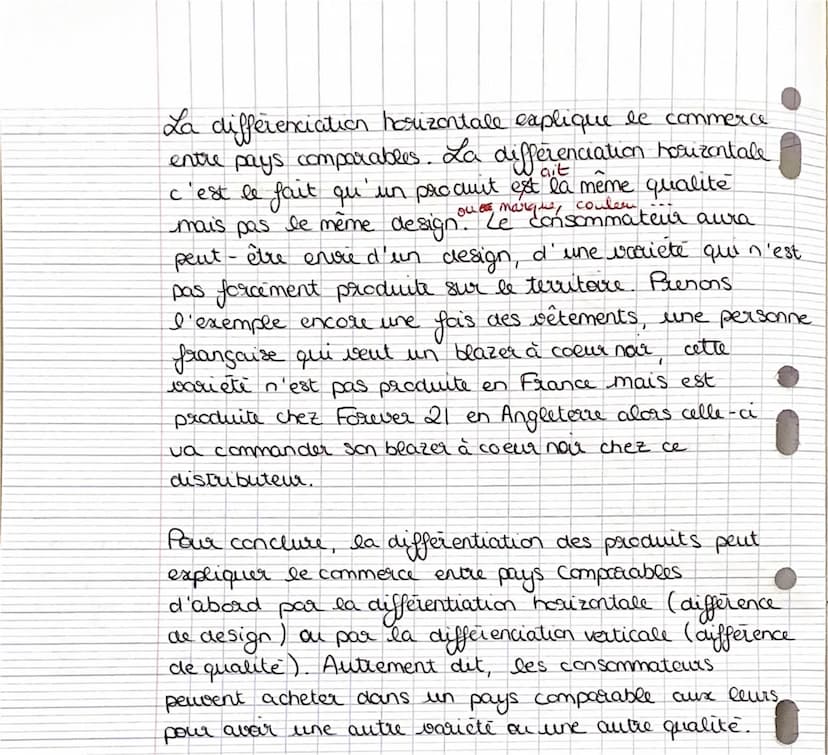 La différenciation horizontale explique le commerce
entre pays comparables. La différenciation horizontale
ait
c'est le fait qu'un produit est la même qualité
ou marque, couleur ...
mais pas le même design. Le consommateur aura
peut-être envie d'un design, d'une variété qui n'est
pas forcément produite sur le territoire. Prenons
l'exemple encore une fois des vêtements, une personne
française qui veut un blazer à coeur noir, cette
variété n'est pas produite en France mais est
produite chez Forever 21 en Angleterre alors celle-ci
va commander son blazer à coeur noir chez ce
distributeur.
Pour conclure, la différentiation des produits peut
expliquer le commerce entre pays comparables
d'abord par la différentiation horizontale (différence
de design) ou par la différenciation verticale (différence
de qualité). Autrement dit, les consommateurs
peuvent acheter dans un pays comparable aux leurs
pour avoir une autre variété ou une autre qualité.